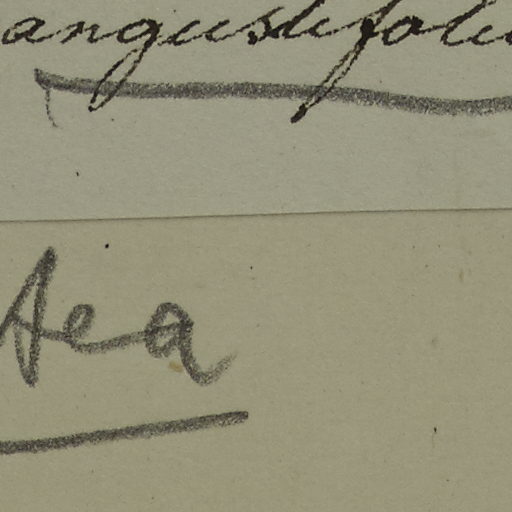 angustifoli
tea